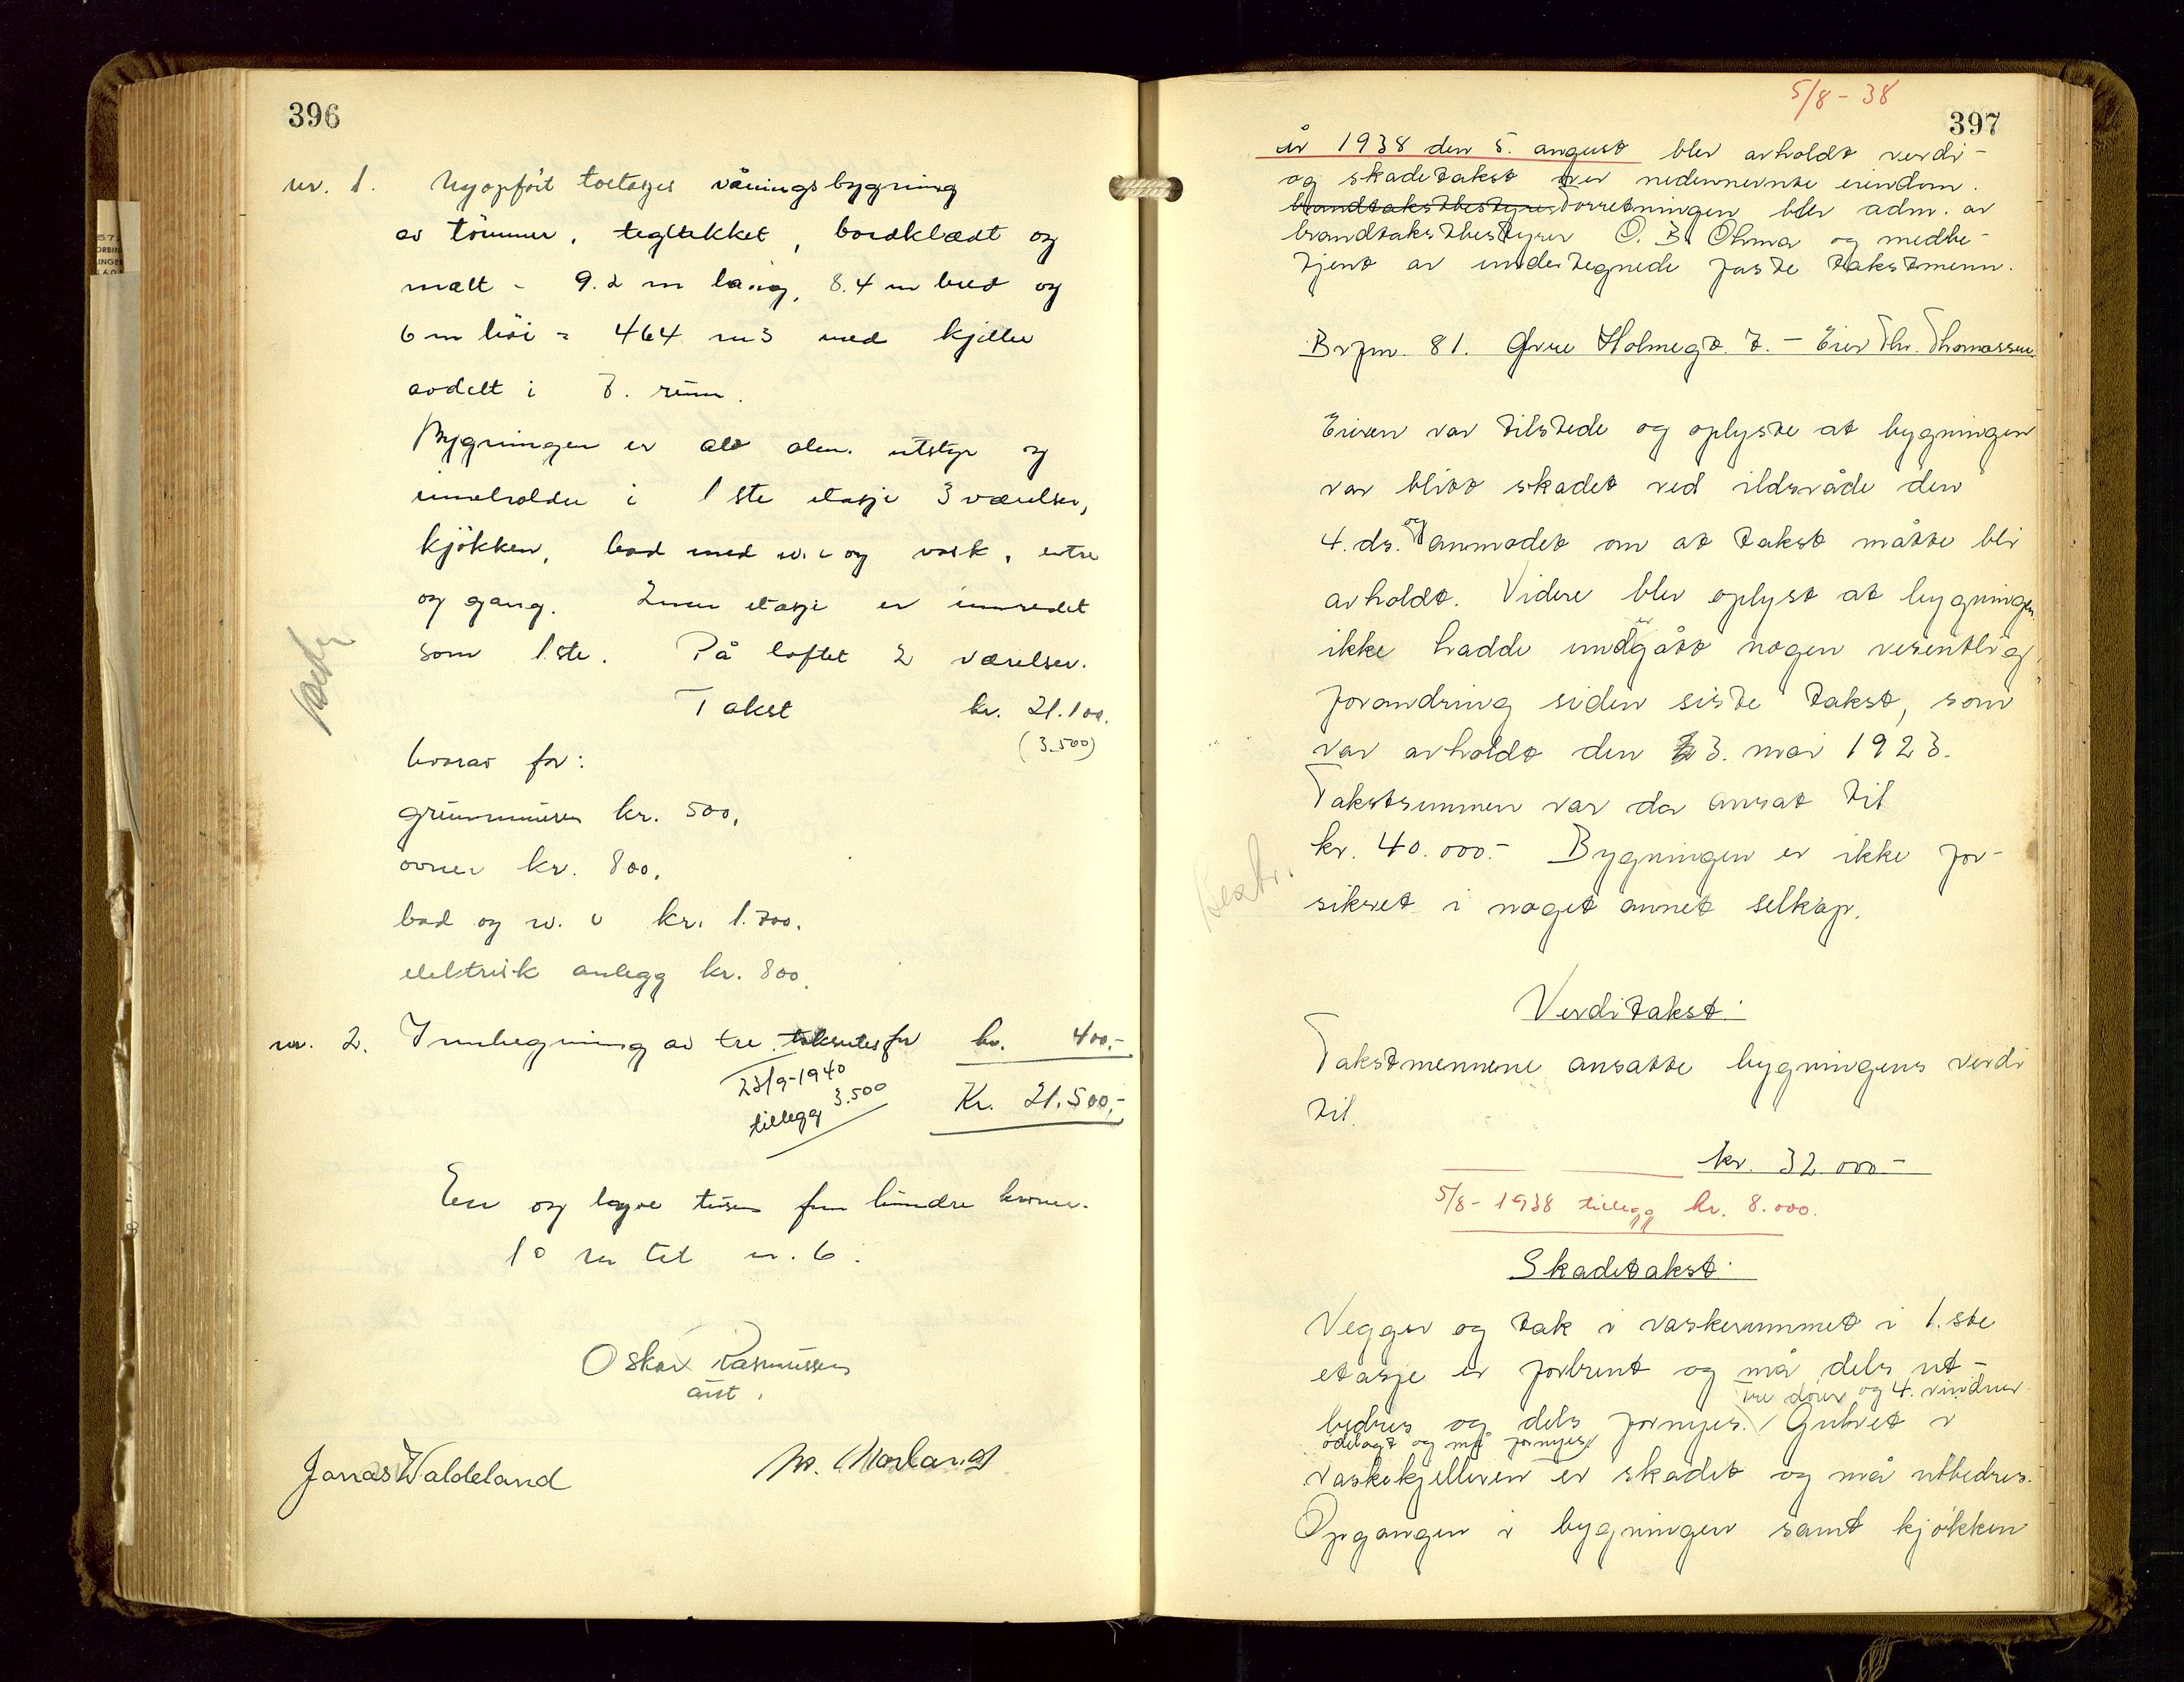 396
nr. 1. Nyopført toetasjes våningsbygning
av tömmer, tegltekket, bordklædt og
malt - 9.2 m lang, 8.4 m bred og
6 m höi = 464 m3 med kjeller
avdelt i 7. rum.
Bygningen er alt alm. utstyr og
inneholder i 1ste etasje 3 værelser,
kjökken, bad med w.c og vask, entre
og gang. 2nen etasje er innredet
som 1ste. På loftet 2 værelser.
Takst kr. 21.100.
(3.500)
hvorav for:
grunnmuren kr. 500,
ovner kr. 800,
bad og w.c kr. 1.700.
elektrisk anlegg kr. 800.
nr. 2. Innhegning av tre takseres for kr. 400,-
23/9-1940
tillegg 3.500
Kr. 21.500,-
En og tyve tusen fem hundre kroner.
Oskar Rasmussen
ass.
Jonas Waldeland
5/8-38
397
år 1938 den 5. august blev avholdt verdi-
og skadetakst over nedennevnte eiendom.
brandtakstbestyrer Forretningen blev adm. av
brandtakstbestyrer O. B. Ohma og medbe-
tjent av undertegnede faste takstmenn.
Brpm. 81. Øvre Holmegt. 7. - Eier Thv. Thomassen
Eieren var tilstede og oplyste at bygningen
var blitt skadet ved ildsvåde den
4. ds. og anmodet om at takst måtte bli
avholdt. Videre blev oplyst at bygningen
ikke hadde undergått nogen vesentlig
forandring siden siste takst, som
var avholdt den 3. mai 1923.
Takstsummen var da ansat til
kr. 40.000.- Bygningen er ikke for-
sikret i noget annet selskap.
Verditakst:
Takstmennene ansatte bygningens verdi
til.
kr. 32.000-
5/8-1938 tillegg kr. 8.000.
Skadetakst:
Vegger og tak i vaskerummet i 1.ste
etasje er forbrent og må dels ut-
tre dører og 4. vinduer
bedres og dels fornyes. Gulvet i
ødelagt og må fornyes
vaskekjelleren er skadet og må utbedres.
Opgangen i bygningen samt kjøkken